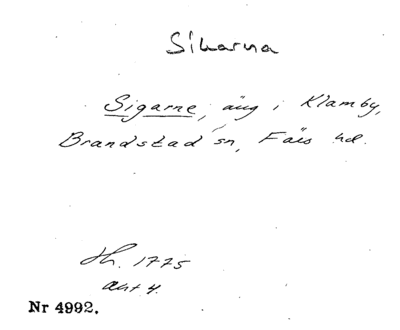 Sikarna
Sigarne, äng i Klamby,
Brandstad sn, Färs hd.
Hh. 1775
akt 4.
Nr 4992.